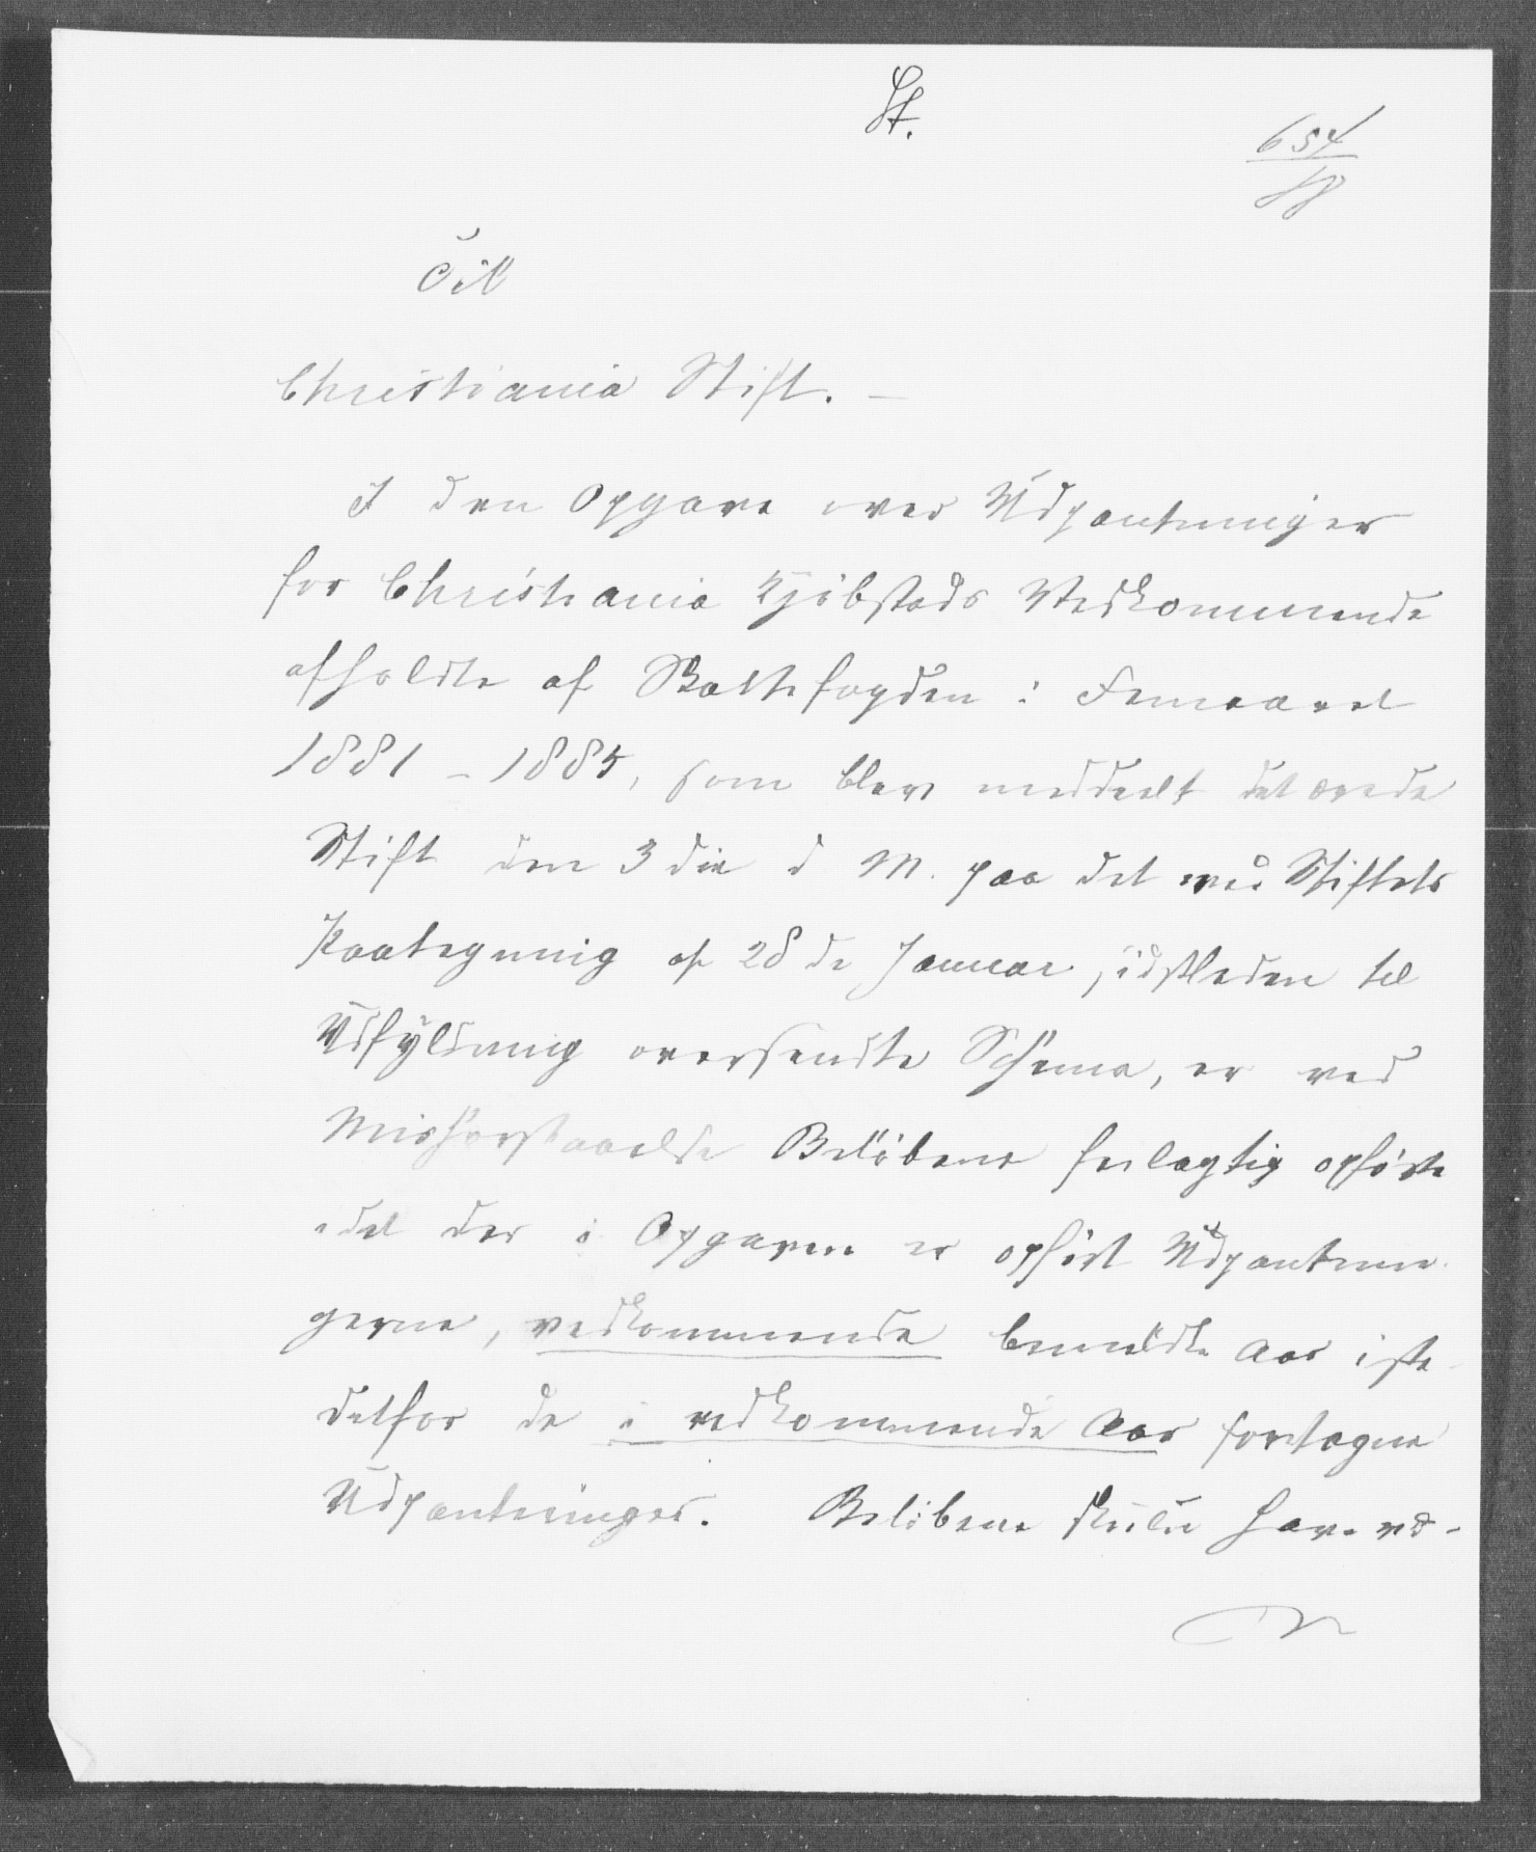 St.
654
Til
Christiania Stift. —
I den Opgave over Udpantninger
for Christiania Kjöbstads Vedkommende
afholdte af Skattefogden i Femaaret
1881 - 1885, som blev meddeelt det ærede
Stift den 3die d M. paa det med Stiftets
Paategning af 28de Januar sidstleden til
Udfyldning oversendte Schema, er ved
Misforstaaelse Belöbene feilagtig opförte
idet der i Opgaven er opfört Udpantnin-
gerne, vedkommende bemeldte Aar iste-
detfor de i vedkommende Aar foretagne
Udpantninger. Belöbene skulle have ud-